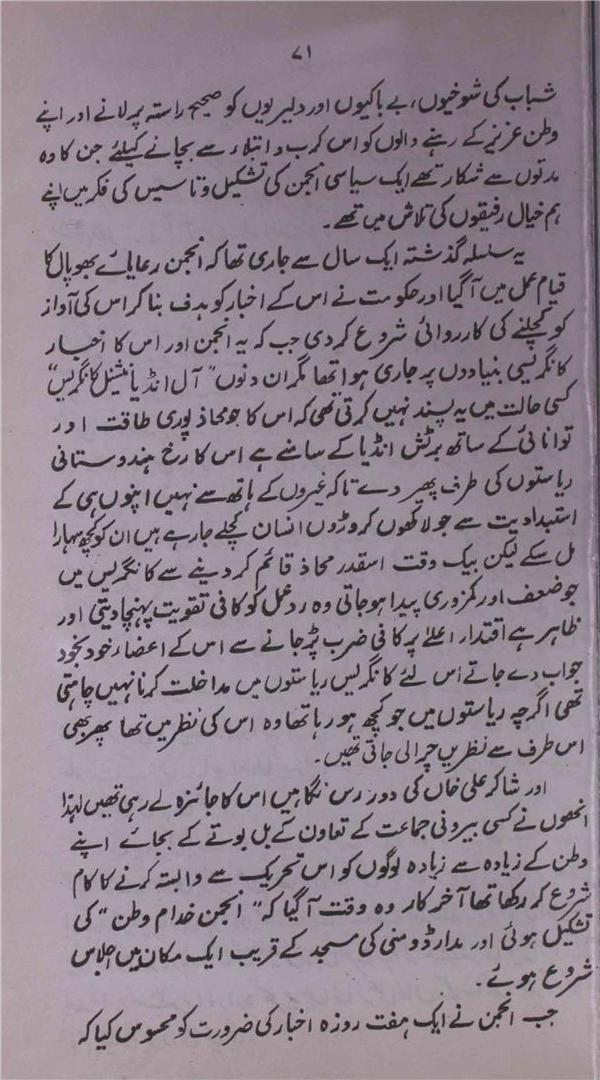 ۷۱
شباب کی شوخیوں، بے باکیوں اور دلیریوں کو صحیح راستہ پر لانے اور اپنے
وطن عزیز کے رہنے والوں کو اس کرب و ابتلاء سے بچانے کیلئے جن کا وہ
مدتوں سے شکار تھے ایک سیاسی انجمن کی تشکیل و تاسیس کی فکر میں اپنے
ہم خیال رفیقوں کی تلاش میں تھے۔
یہ سلسلہ گذشتہ ایک سال سے جاری تھا کہ انجمن رعایائے بھوپال کا
قیام عمل میں آگیا اور حکومت نے اس کے اخبار کو ہدف بنا کر اس کی آواز
کو کچلنے کی کارروائی شروع کر دی جب کہ یہ انجمن اور اس کا اخبار
کانگریسی بنیادوں پر جاری ہوا تھا مگر ان دنوں "آل انڈیا نیشنل کانگریس"
کسی حالت میں یہ پسند نہیں کرتی تھی کہ اس کا جو محاذ پوری طاقت اور
توانائی کے ساتھ برٹش انڈیا کے سامنے ہے اس کا رخ ہندوستانی
ریاستوں کی طرف پھیر دے تاکہ غیروں کے ہاتھ سے نہیں اپنوں ہی کے
استبدادیت سے جو لاکھوں کروڑوں انسان کچلے جا رہے ہیں ان کو کچھ سہارا
مل سکے لیکن بیک وقت اسقدر محاذ قائم کر دینے سے کانگریس میں
جو ضعف اور کمزوری پیدا ہو جاتی وہ ردعمل کو کافی تقویت پہنچا دیتی اور
ظاہر ہے اقتدار اعلیٰ پر کافی ضرب پڑ جانے سے اس کے اعضار خود بخود
جواب دے جاتے اس لئے کانگریس ریاستوں میں مداخلت کرنا نہیں چاہتی
تھی اگرچہ ریاستوں میں جو کچھ ہو رہا تھا وہ اس کی نظر میں تھا پھر بھی
اس طرف سے نظریں چرالی جاتی تھیں۔
اور شاکر علی خاں کی دور رس نگاہیں اس کا جائزہ لے رہی تھیں لہٰذا
انھوں نے کسی بیرونی جماعت کے تعاون کے بل بوتے کے بجائے اپنے
وطن کے زیادہ سے زیادہ لوگوں کو اس تحریک سے وابستہ کرنے کا کام
شروع کر رکھا تھا آخر کار وہ وقت آگیا کہ "انجمن خدام وطن" کی
تشکیل ہوئی اور مدار ڈومنی کی مسجد کے قریب ایک مکان میں اجلاس
شروع ہوئے۔
جب انجمن نے ایک ہفت روزہ اخبار کی ضرورت کو محسوس کیا کہ